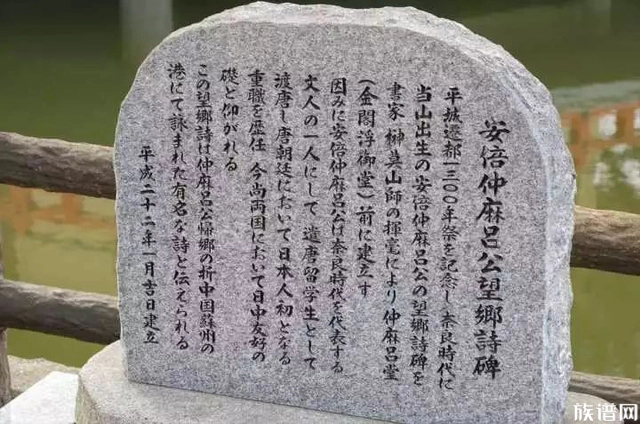 安倍仲麻呂公望郷詩碑
平城遷都一三〇〇年祭を記念し奈良時代に
当山出生の安倍仲麻呂公の望郷詩碑を
書家 榊莫山師の揮毫により仲麻呂堂
(金閣浮御堂)前に建立す
因みに安倍仲麻呂公は奈良時代を代表する
文人の一人にして 遣唐留学生として
渡唐し唐朝廷において日本人初となる
重職を歴任 今尚両国において日中友好の
礎と仰がれる
この望郷詩は仲麻呂公帰郷の折中国蘇州の
港にて詠まれた有名な詩と伝えられる
平成二十二年一月吉日建立
族谱网